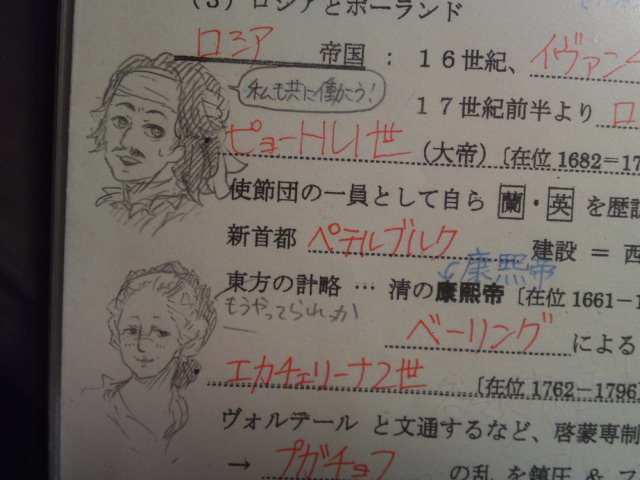 (3) ロシアとポーランド
ロシア 帝国 : 16世紀、イヴァン
私も共に働こう!
17世紀前半より ロ
ピョートル1世 (大帝) [在位1682=17
使節団の一員として自ら 蘭・英 を歴訪
新首都 ペテルブルク 建設 = 西
康熙帝
東方の計略 … 清の康熙帝 [在位1661-1
もうやってられっか
ベーリング による
エカチェリーナ2世 [在位1762-1796
ヴォルテール と文通するなど、啓蒙専制
→ プガチョフ の乱 を鎮圧 &